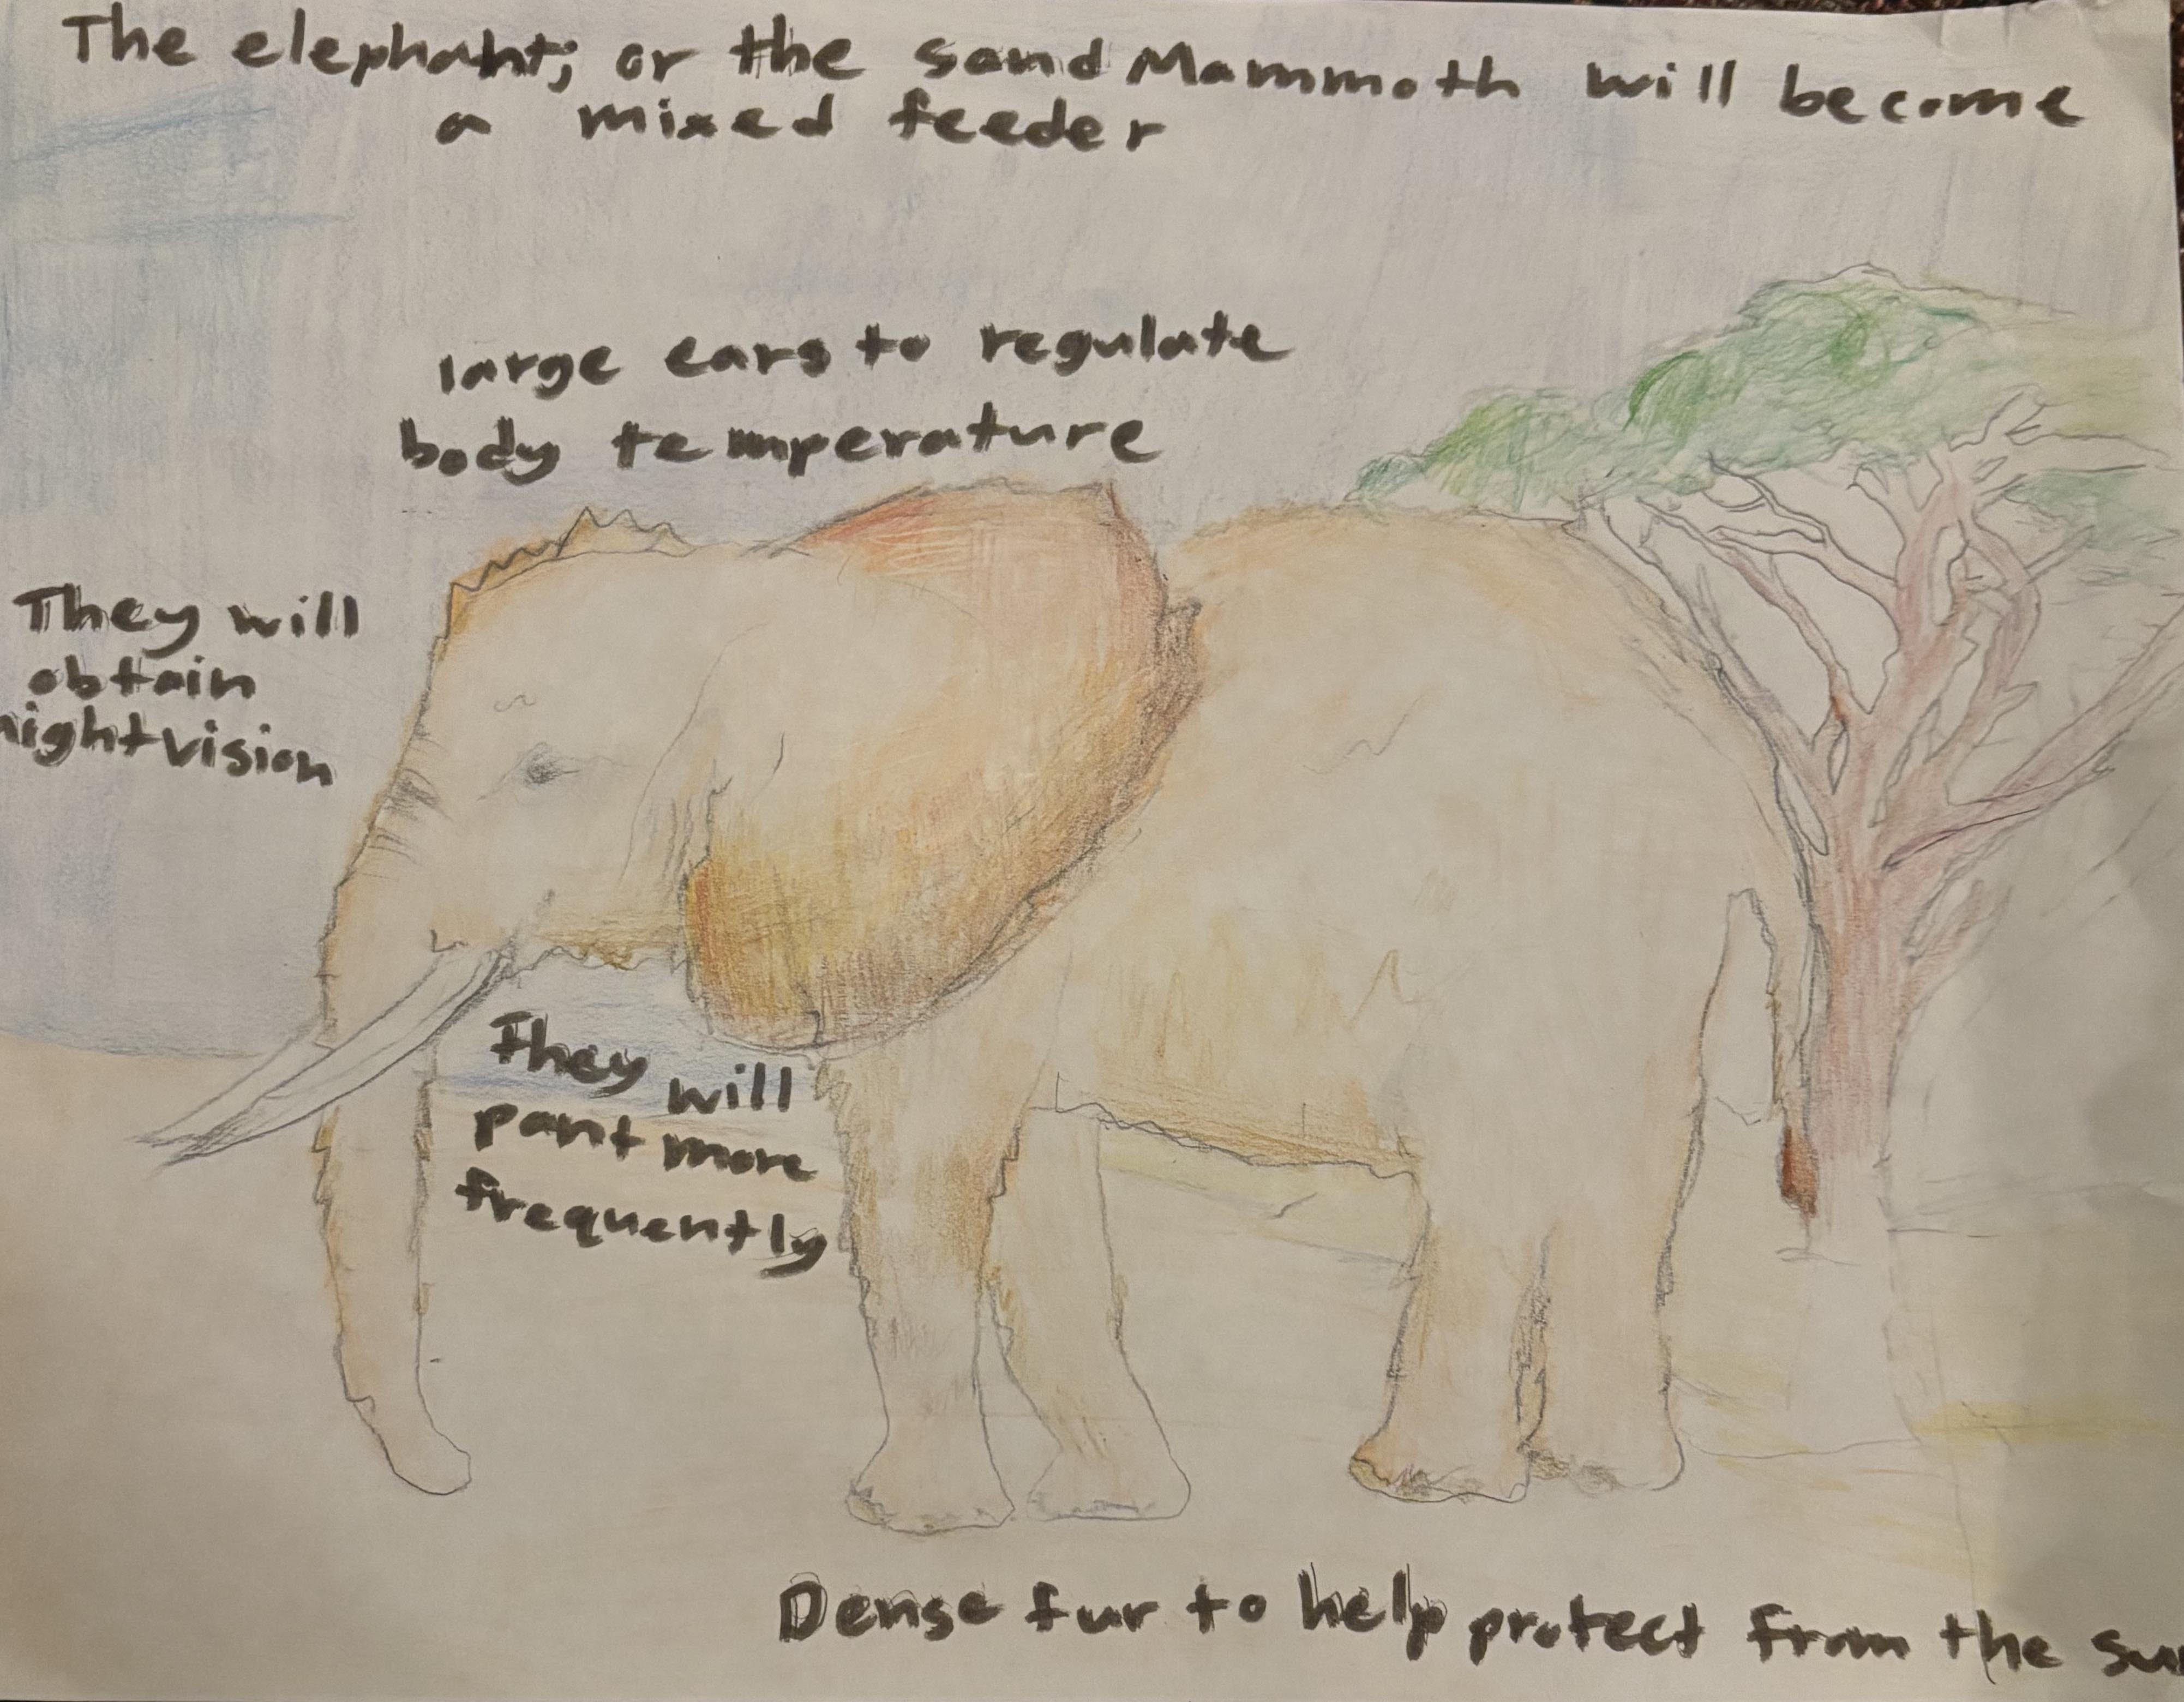 The elephant; or the sand Mammoth will become
a mixed feeder
large ears to regulate
body temperature
They will
obtain
nightvision
They will
pant more
frequently
Dense fur to help protect from the